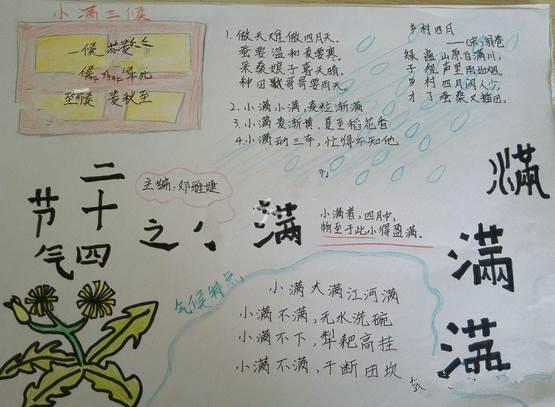 小满三候
一候 苦菜冬
候
至候 麦秋至
1. 做天难做四月天,
蚕要温和麦要寒。
采桑娘子喜天晴,
种田哥哥要雨天。
2. 小满小满,麦粒渐满
3. 小满麦渐黄,夏至稻花香
4. 小满动三车,忙得不知他
乡村四月
宋 翁卷
绿遍山原白满川,
子规声里雨如烟。
乡村四月闲人少,
才了蚕桑又插田。
二十四
节气
之
小
满
主编:邓雅婕
小满者,四月中,
物至于此小得盈满。
满
滿
满
气候特点
小满大满江河满
小满不满,无水洗碗
小满不下,犁耙高挂
小满不满,干断田坎